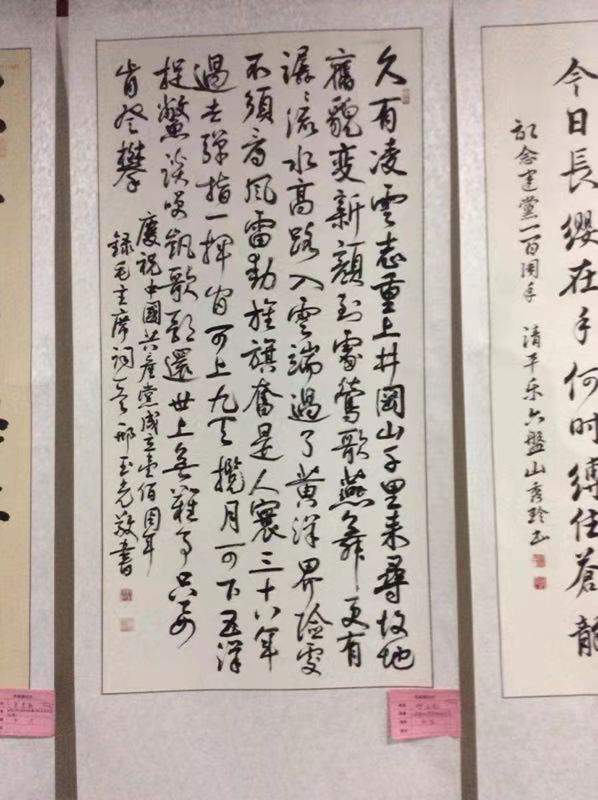 今日長纓在手何時縛住蒼龍
記念建黨一百周年 清平乐六盤山 秀玲书
久有凌雲志重上井岡山千里来尋故地
舊貌變新顔到處鶯歌燕舞更有
潺潺流水高路入雲端過了黄洋界險處
不須看風雷動旌旗奮是人寰三十八年
過去彈指一揮間可上九天攬月可下五洋
捉鱉談笑凱歌還世上無難事只要
肯登攀
慶祝中國共産党成立壹佰周年
録毛主席詞一首 邢玉光敬書